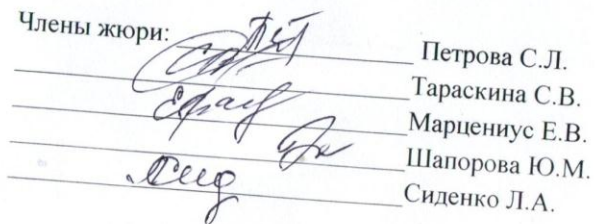 Члены жюри: Петрова С.Л.
Тараскина С.В.
Марцениус Е.В.
Шапорова Ю.М.
Сиденко Л.А.